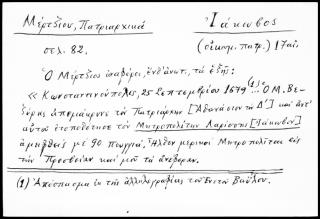 Μέρτζιου, Πατριαρχικά
Ἰάκωβος
σελ. 82.
(οἰκουμ. πατρ.) 17 αἰ.
Ὁ Μέρτζιος ἀναφέρει, ἔνθ' ἀνωτ., τὰ ἑξῆς:
« Κωνσταντινούπολις, 25 Σεπτεμβρίου 1679 (1)... Ὁ Μ. Βε-
ζύρης ἀπεμάκρυνε τὸν Πατριάρχην [Ἀθανάσιον τὸν Δ΄] καὶ ἀντ'
αὐτοῦ ἐτοποθέτησε τὸν Μητροπολίτην Λαρίσσης [Ἰάκωβον]
ἀμειφθεὶς μὲ 90 πουγγιά. Ἦλθον μερικοὶ Μητροπολῖται εἰς
τὴν Πρεσβείαν καὶ μοῦ τὰ ἀνέφεραν.
(1) Ἀπόσπασμα ἐκ τῆς ἀλληλογραφίας τοῦ Ἑνετοῦ Βαΐλου.